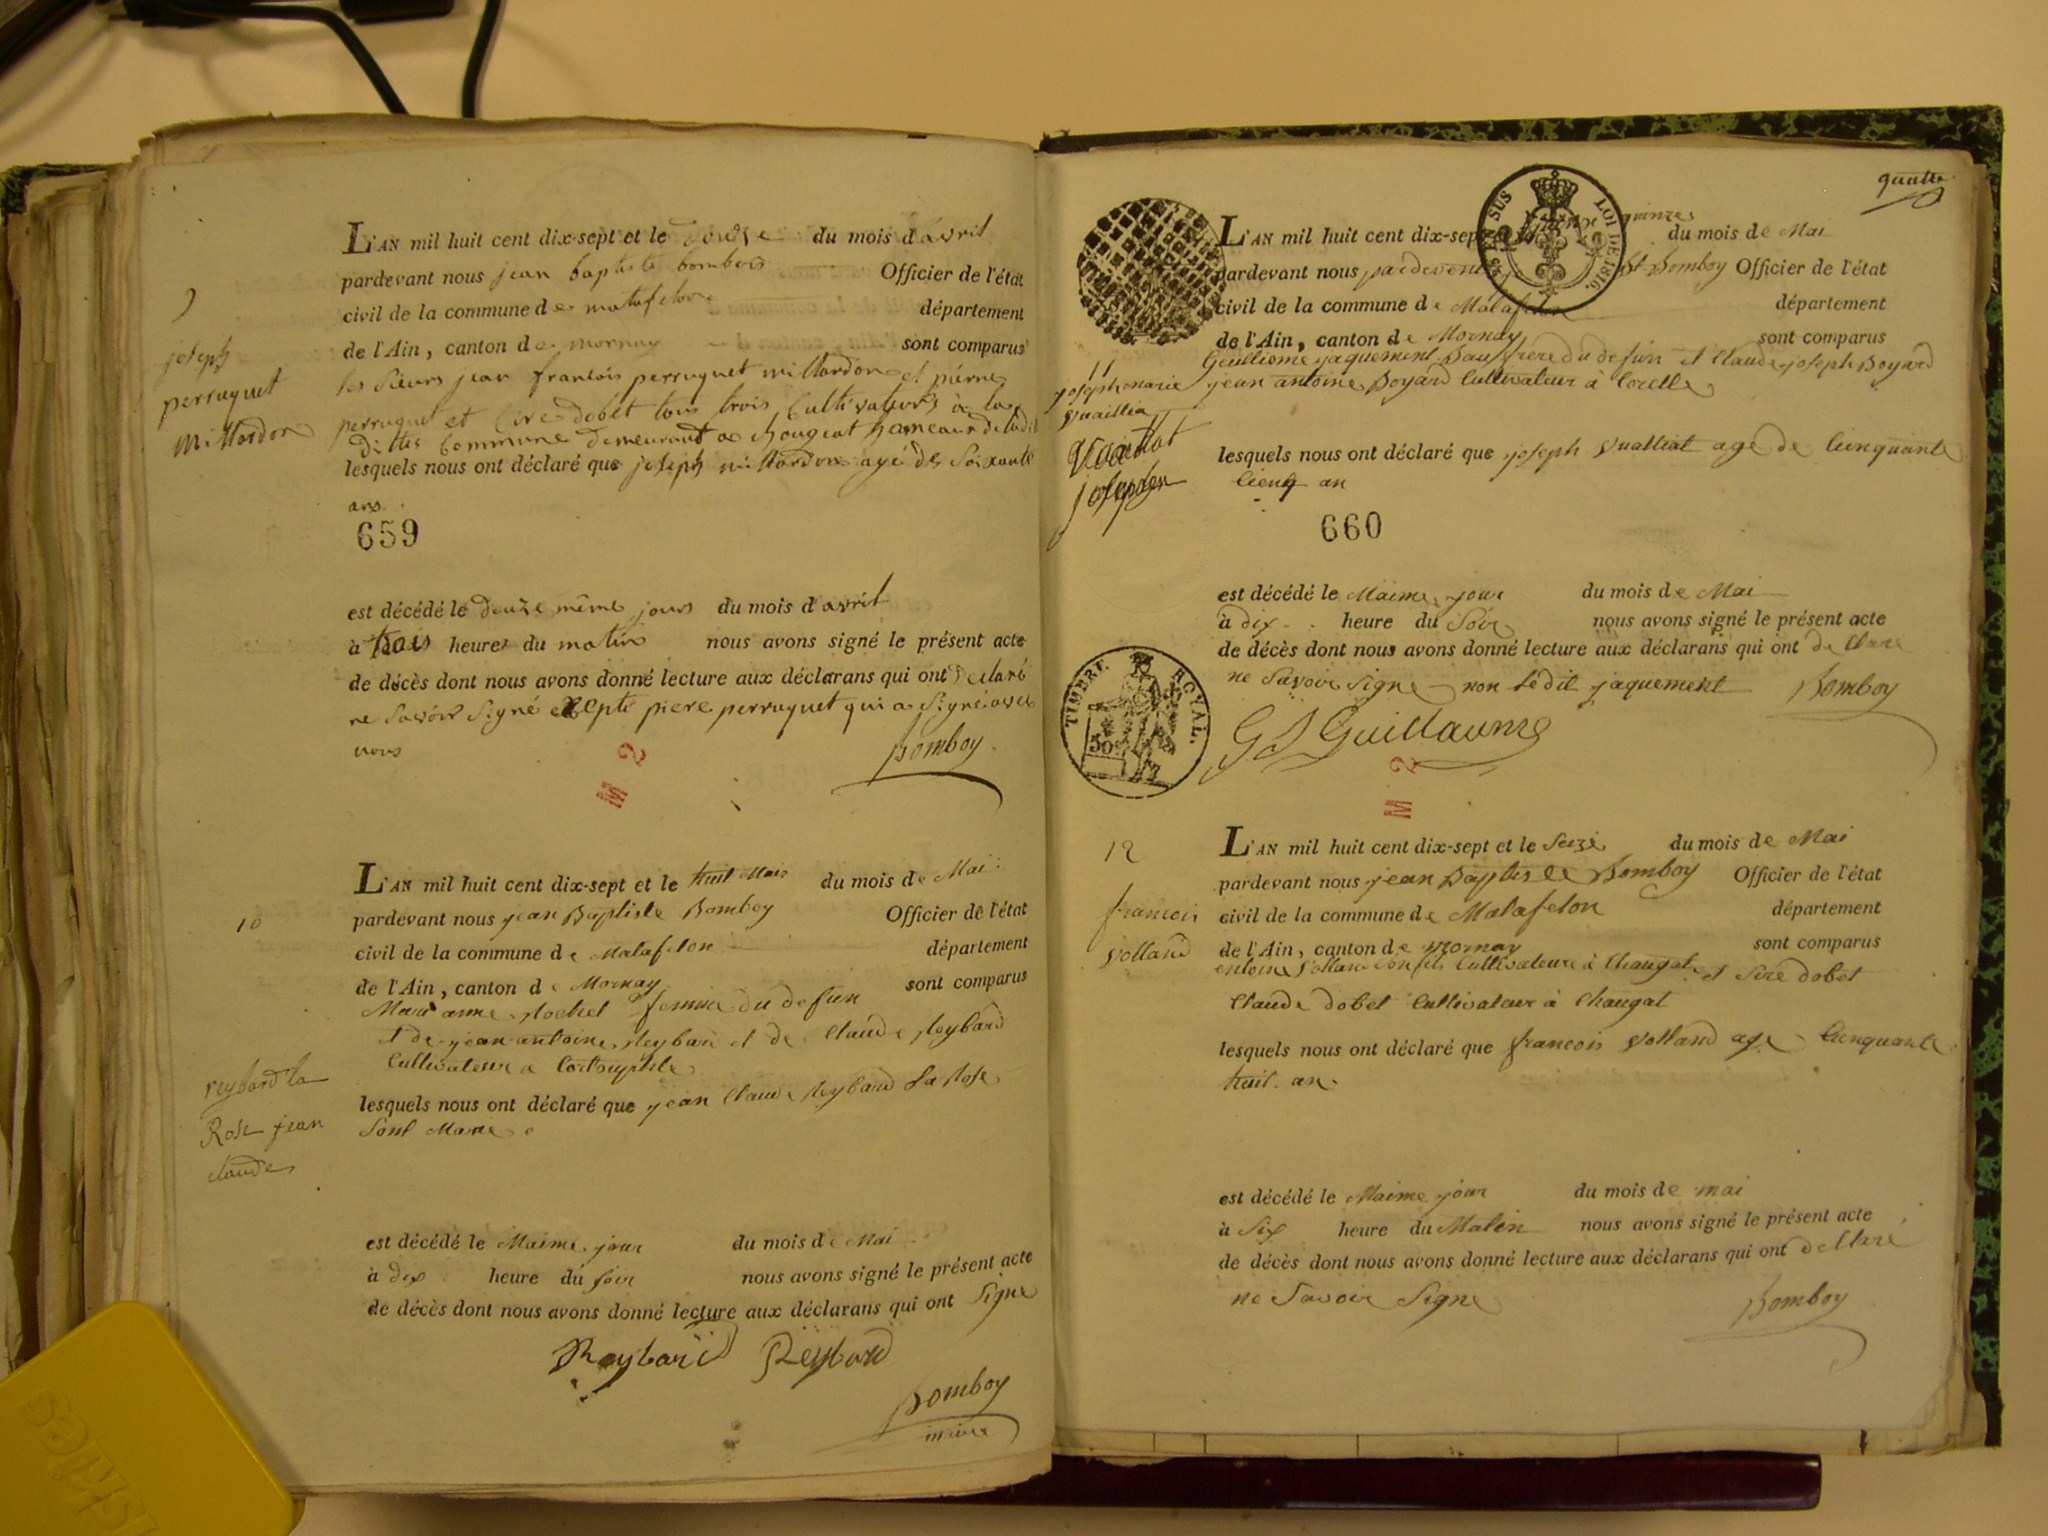 9
joseph
perruquet
millardon
L'AN mil huit cent dix-sept et le douze du mois d'avril
pardevant nous jean baptiste bombois Officier de l'état
civil de la commune de matafelon département
de l'Ain, canton de mornay sont comparus
les sieurs jean francois perruquet millardon et pierre
perruquet et Cire dobet tous trois Cultivateurs à la
dittes Commune demeurant a chougeat hameaux de ladit
lesquels nous ont déclaré que joseph millardon agé de soixante
ans
659
est décédé le douze même jours du mois d'avril
à trois heures du matin nous avons signé le présent acte
de décès dont nous avons donné lecture aux déclarans qui ont déclaré
ne savoir signé exepté piere perruquet qui a signé avec
nous
Bomboy
M 2
10
reybard la
Rose jean
claude
L'AN mil huit cent dix-sept et le huit Mais du mois de Mai
pardevant nous jean Baptiste Bomboy Officier de l'état
civil de la commune de Matafelon département
de l'Ain, canton de Mornay sont comparus
Marianne Rochet femme du defun
et de jean antoine Reybard et de Claude Reybard
Cultivateur a
lesquels nous ont déclaré que jean Claude Reybard La Rose
Sont Mari
est décédé le Maime jour du mois de Mai
à dix heure du soir nous avons signé le présent acte
de décès dont nous avons donné lecture aux déclarans qui ont Signe
Reybard Reybard
Bomboy
maire
quatre
SUS LOI DE 1816.
11
joseph marie
vuaillia
joseph
L'AN mil huit cent dix-sept quinze du mois de Mai
pardevant nous pardevent Bt Bomboy Officier de l'état
civil de la commune de Matafelon département
de l'Ain, canton de Mornay sont comparus
Geulieome jaquement Baufrere du defun et Claude joseph Boyard
jean antoine Boyard Cultivateur à Corelle
lesquels nous ont déclaré que joseph vualliat age de Cienquante
Cienq an
660
est décédé le Maime jour du mois de Mai
à dix heure du Soir nous avons signé le présent acte
de décès dont nous avons donné lecture aux déclarans qui ont declare
ne Savoir Signe non ledit jaquement Bomboy
TIMBRE ROYAL.
50
G J Guillaume
M 2
12
francois
volland
L'AN mil huit cent dix-sept et le Seize du mois de Mai
pardevant nous jean Baptiste Bomboy Officier de l'état
civil de la commune de Matafelon département
de l'Ain, canton de mornay sont comparus
entoine volland son fils Cultivateur à Chaugat et Sire dobet
Claude dobet Cultivateur à Chaugat
lesquels nous ont déclaré que francois volland age Cienquante
huit an
est décédé le Maime jour du mois de mai
à Six heure du Matin nous avons signé le présent acte
de décès dont nous avons donné lecture aux déclarans qui ont declaré
ne Savoir Signe
Bomboy